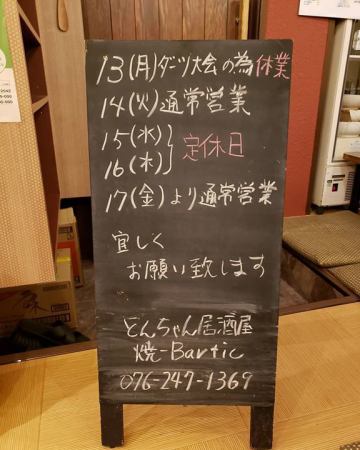 13(月)ダーツ大会の為休業
14(火)通常営業
15(水)
16(木)}定休日
17(金)より通常営業
宜しく
お願い致します
どんちゃん居酒屋
焼-Bartic
076-247-1369